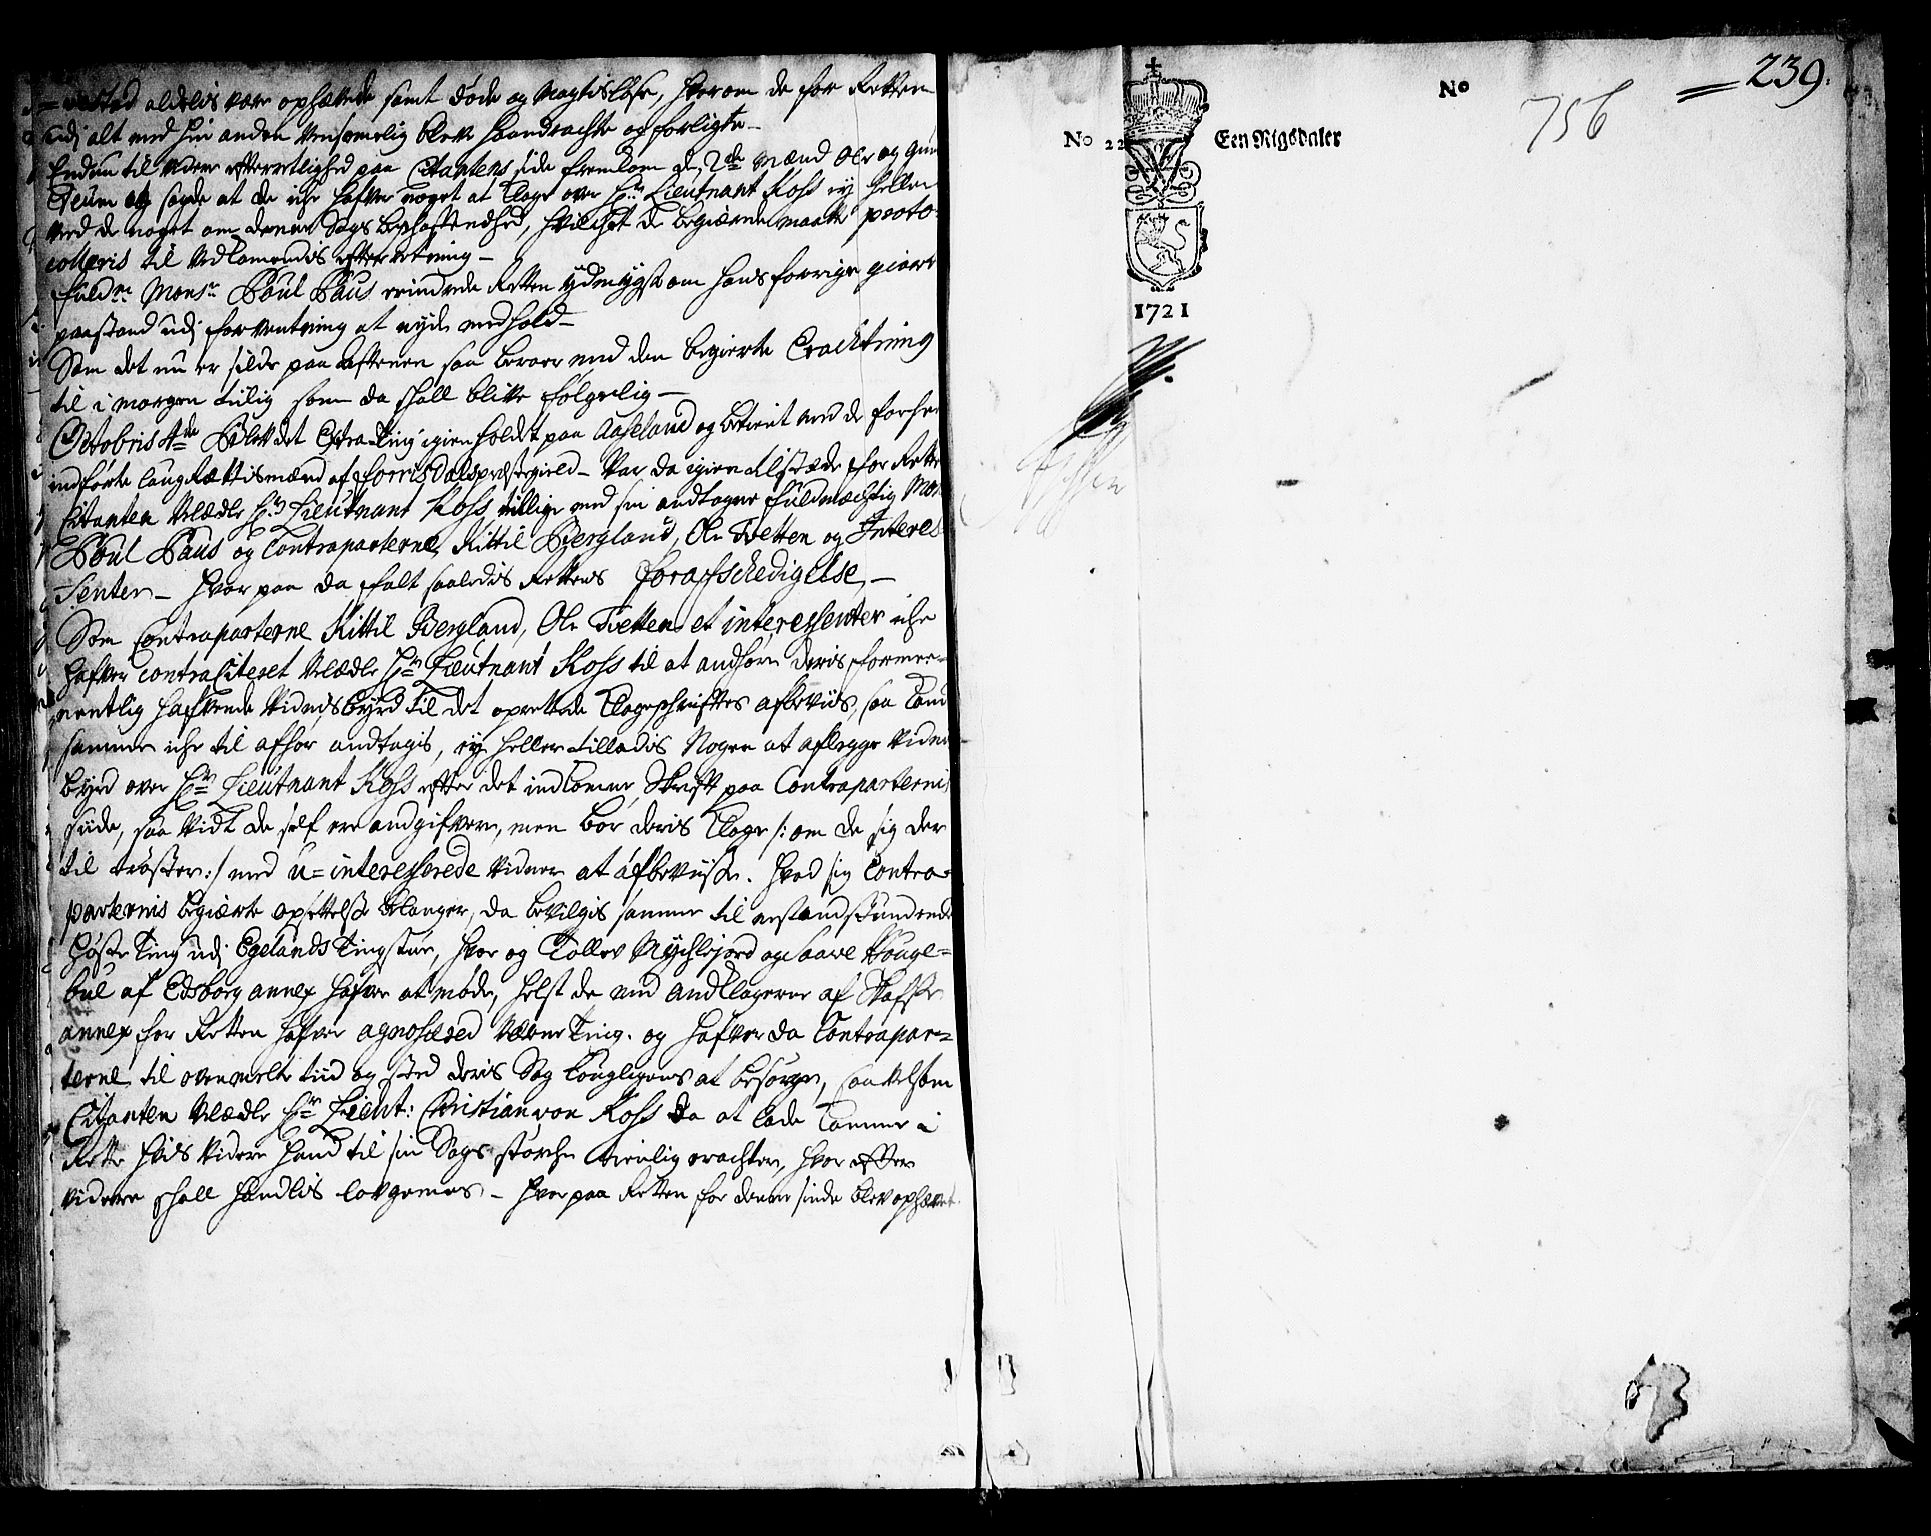 =vestad aldelis være ophævede samt døde og Magtisløse, hvorom de for Retten
udj alt med hin anden Vensommelig bleve haandrachte og forligte –
Endnu til videre efterretlighed paa Citantens side fremkom de 2de Mænd Ole og
og sagde at de iche hafver noget at klage over Hr. Lieutnant Koss ey heller
ved de noget om denne Sags beschaffendhed, hvilchet de begiærede maatte proto
colleris til vedkommendis efterretning –
Fuldm. Monsr. Poul Paus erindrede Retten ydmygst om hans forrige giorte
paastand udj forventning at nyde medhold –
Som det nu er silde paa aftenen saa beroer med den begierte Eracktning
til i morgen tiilig som da skall blive følgelig –
Octobris 4de Blev det Extra Ting igien holdet paa Aaseland og betient med de forhen
indførte laugRettismænd af Horrisdals præstegield – Var da igien tilstæde for Retten
Citanten Velædle Hr. Lieutnant Koss tillige med sin andtagne fuldmæchtig Mon
Poul Paus og Contraparterne Kittil Bergland, Ole Tvetten og Interes
Senter – hvor paa da falt saaledis Rettens Foraffschedigelse, –
Som Contraparterne Kittil Bergland, Ole Tvetten et interessenter iche
hafver contraCiteret Velædle Hr. Lieutnant Koss til at andhøre deris formee=
nentlig hafvende Vidnisbyrd til det oprettede Klageschriftes afbeviis, saa kand
samme iche til afhør andtagis, ey heller tilladis Nogen at aflegge Vidnis
byrd over Hr. Lieutnant Koss efter det indkomne Skrift paa Contraparternis
siide, saa vidt de self ere andgifvere, men bør deris Klage /: om de sig der
til trøster :/ med u=interesserede Vidner at afbeviise. Hvad sig Contra=
parternis begiærte opsettelse belanger, da bevilgis samme til nestandstundende
Høste Ting udj Egelands Tingstue, hvor og Tollev Mychlejord og Saave Houge=
bul af Edsborg annex hafver at møde, helst de med Andklagerne af Skafse
annex for Retten hafver agnosered Værne Ting. og hafver da Contrapar=
terne til ovenmelte tiid og sted deris Sag louligens at besørge, saavelsom
Citanten Velædle Hr. Lieut: Christian von Koss da at lade komme i
Rette hvis videre hand til sin Sags støRche tienlig eracter, hvor efter
videre skall handlis lovgemæs – hvor paa Retten for denne sinde blev ophævet.
239.
No
756
No 22
Een Rigsdaler
1721